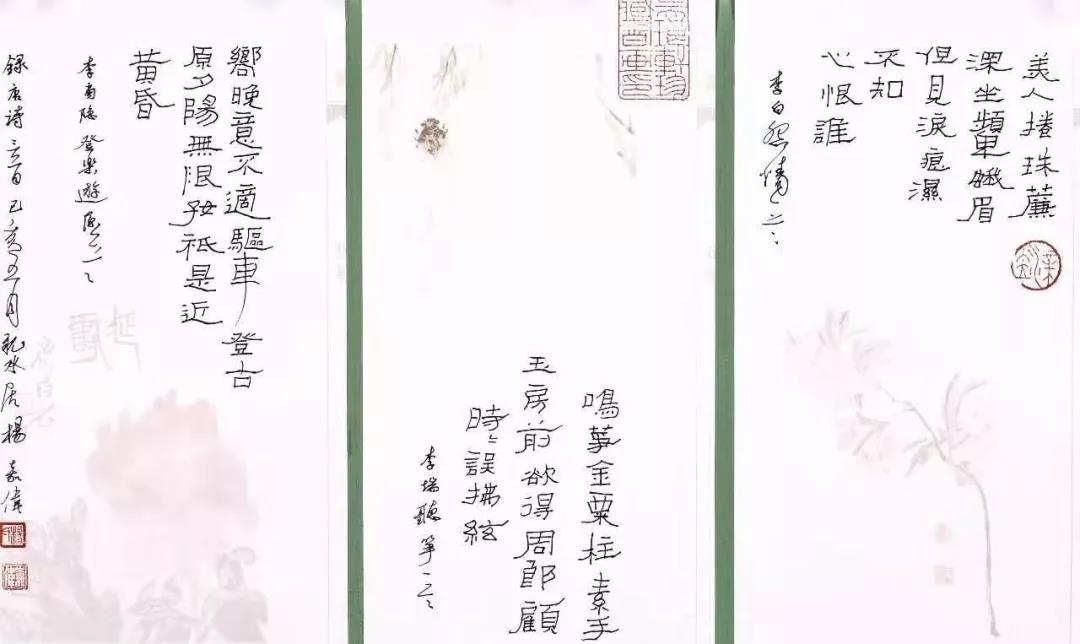 美人捲珠簾
深坐顰蛾眉
但見淚痕濕
不知
心恨誰
李白怨情
鳴箏金粟柱素手
玉房前欲得周郎顧
時〻誤拂絃
李瑞聽箏
嚮晚意不適驅車登古
原夕陽無限好祇是近
黃昏
李商隱登樂遊原
錄唐詩三首己亥五月水居楊嘉偉